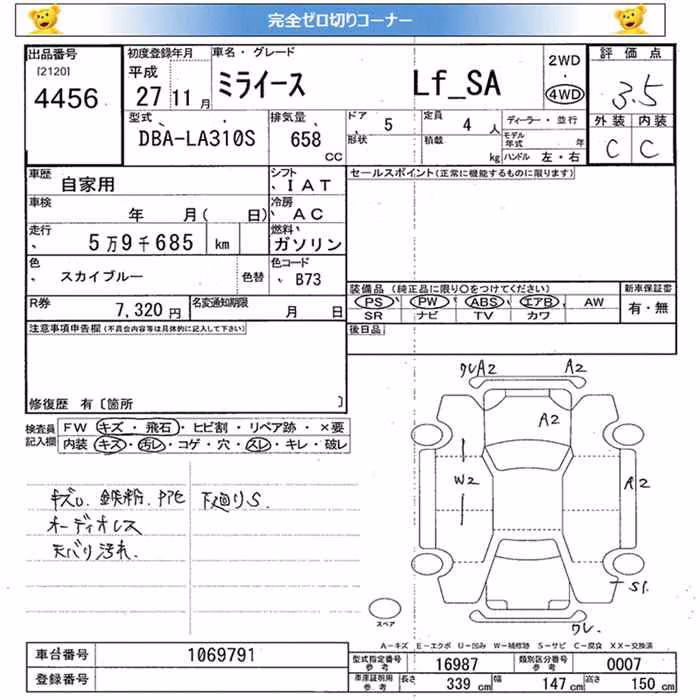 完全ゼロ切りコーナー
出品番号 初度登録年月 車名・グレード 2WD 評価点
[2120] 平成 ・
4456 27 11月 ミライース Lf_SA 4WD 3.5
型式 排気量 ドア 5 定員 4 人 ディーラー・並行 外装 内装
DBA-LA310S 658 CC 形状 積載 kg モデル年式 年 C C
ハンドル 左・右
車歴 自家用 シフト IAT セールスポイント(正常に機能するものに限ります)
車検 年 月( 日) 冷房 AC
走行 5万9千685 km 燃料 ガソリン
色 スカイブルー 色替 色コード B73
装備品(純正品に限り○をつけてください) 新車保証書
R券 7,320円 名変通知期限 月 日 PS PW ABS エアB AW 有・無
SR ナビ TV カワ
注意事項申告欄(不具合内容等は具体的に記入して下さい) 後日品
修復歴 有〔箇所 〕
検査員 FW キズ・飛石・ヒビ割・リペア跡・×要
記入欄 内装 キズ・汚レ・コゲ・穴・スレ・キレ・破レ
ワレA2 A2
A2
W2 A2
キズU. 鉄粉. 下廻りS.
オーディオレス
天バリ汚れ.
S1.
ワレ.
スペア
A-キズ E-エクボ U-凹み W-補修跡 S-サビ C-腐食 XX-交換済
車台番号 1069791 型式指定番号 参考 16987 類別区分番号 参考 0007
登録番号 車庫証明用 参考 長さ 339cm 幅 147cm 高さ 150cm